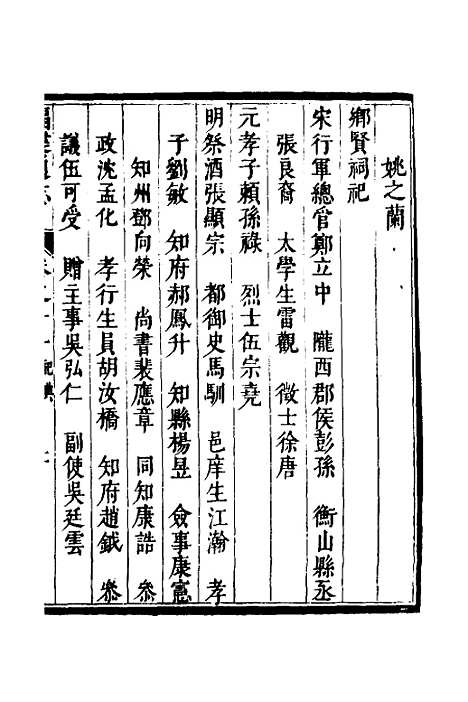 姚之蘭
鄉賢祠祀
宋行軍總管鄭立中　隴西郡侯彭孫　衡山縣丞
張良裔　太學生雷觀　徵士徐唐
元孝子賴孫祿　烈士伍宗堯
明祭酒張顯宗　都御史馬馴　邑庠生江瀚　孝
子劉敏　知府郝鳳升　知縣楊昱　僉事康憲
知州鄧向榮　尚書裴應章　同知康誥　叅
政沈孟化　孝行生員胡汝橋　知府趙鉞　叅
議伍可受　贈主事吳弘仁　副使吳廷雲